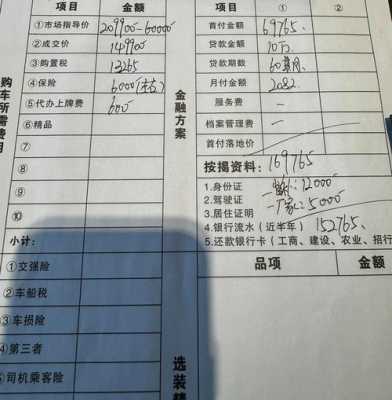 项目 金额 项目 ① ②
①市场指导价 209900-60000 首付金额 69765.
②成交价 149900 贷款金额 10万.
③购置税 13265 贷款期数 60期
④保险 6000(左右) 月付金额 2082.
⑤代办上牌费 600 服务费 —
⑥精品 档案管理费 —
⑦ 首付落地价
⑧ 按揭资料: 169765
⑨ 1.身份证 12000
⑩ 2.驾驶证 5000
3.居住证明
小计: 4.银行流水(近半年) 152765.
5.还款银行卡(工商、建设、农业、招行
购车所需费用
金融方案
①交强险 品项 金额
②车船税
③车损险
④第三者
⑤司机乘客险
选装精